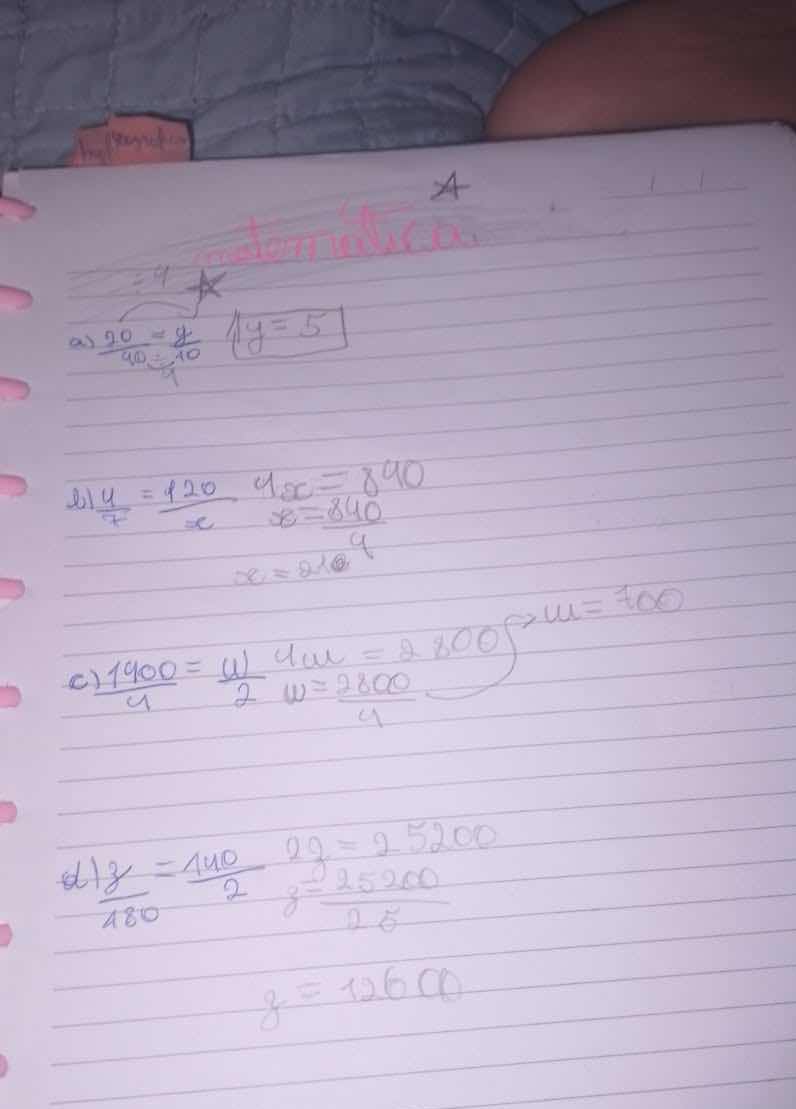 matemática
÷4
a) 20/40 = y/10 y = 5
÷4
b) 4/7 = 120/x 4x = 840
x = 840/4
x = 210
c) 1400/4 = w/2 4w = 2800 → w = 700
w = 2800/4
d) z/180 = 140/2 2z = 25200
z = 25200
z = 12600